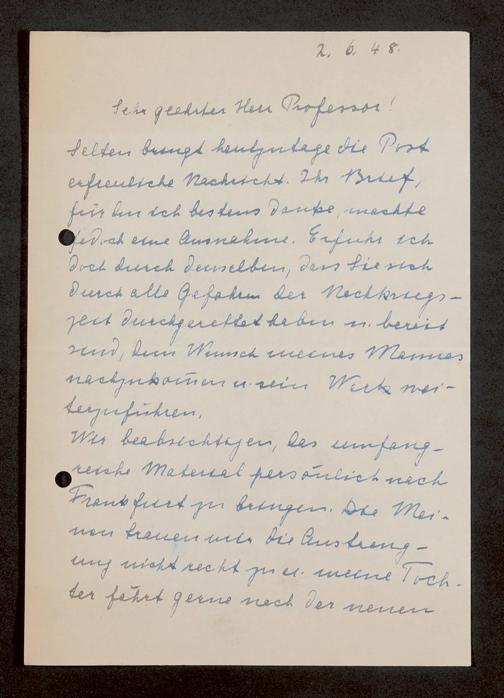 2. 6. 48.
Sehr geehrter Herr Professor!
Selten bringt heutzutage die Post
erfreuliche Nachricht. Ihr Brief,
für den ich bestens danke, machte
jedoch eine Ausnahme. Erfuhr ich
doch durch denselben, dass Sie sich
durch alle Gefahren der Nachkriegs-
zeit durchgerettet haben u. bereit
sind, dem Wunsch meines Mannes
nachzukommen u. sein Werk wei-
terzuführen.
Wir beabsichtigen, das umfang-
reiche Material persönlich nach
Frankfurt zu bringen. Die Mei-
nen trauen mir die Anstreng-
ung nicht recht zu u. meine Toch-
ter fährt gerne nach der neuen